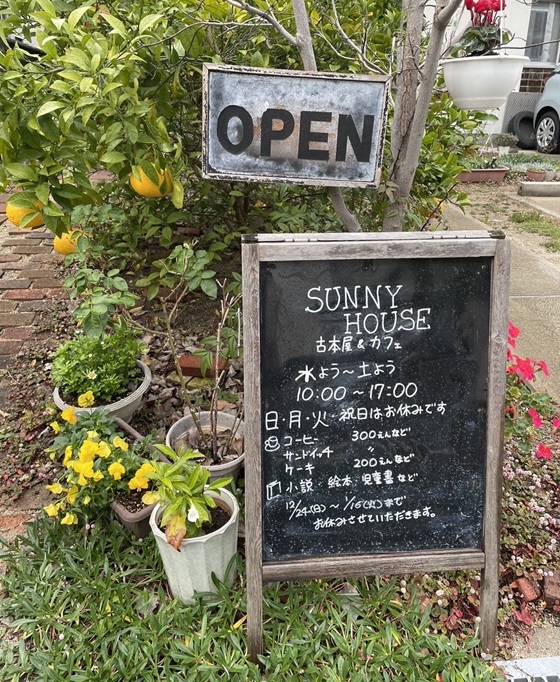 OPEN
SUNNY
HOUSE
古本屋&カフェ
水よう〜土よう
10:00〜17:00
日・月・火・祝日はお休みです
コーヒー 300えんなど
サンドイッチ 〃
ケーキ 200えんなど
小説・絵本・児童書など
12/24(日)〜1/16(火)まで
お休みさせていただきます。